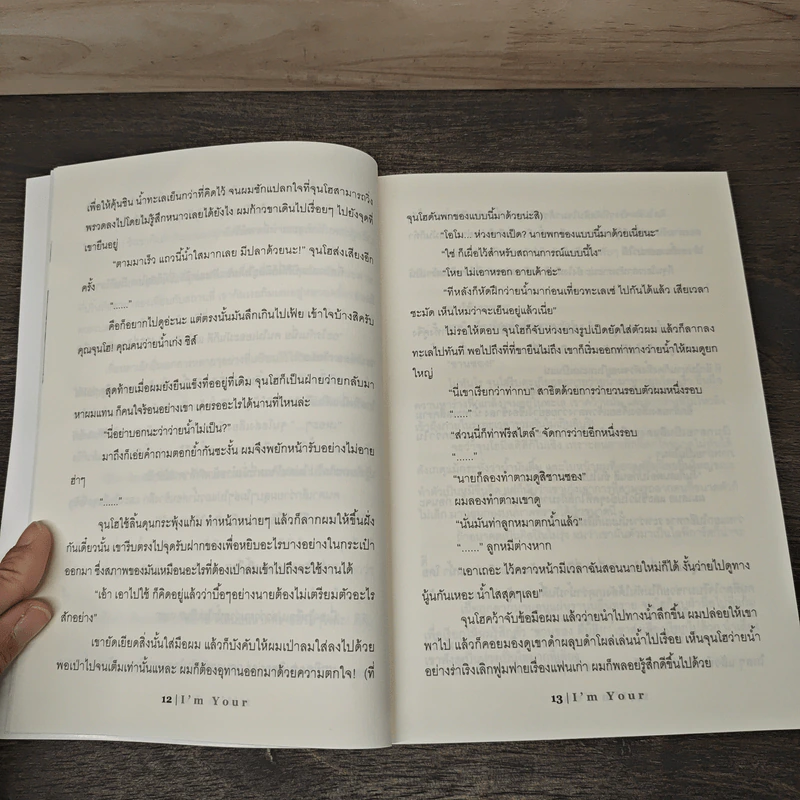 เพื่อให้คุ้นชิน น้ำทะเลเย็นกว่าที่คิดไว้ จนผมชักแปลกใจที่จุนโฮสามารถวิ่ง
พรวดลงไปโดยไม่รู้สึกหนาวเลยได้ยังไง ผมก้าวขาเดินไปเรื่อยๆ ไปยังจุดที่
เขายืนอยู่
“ตามมาเร็ว แถวนี้น้ำใสมากเลย มีปลาด้วยนะ!” จุนโฮส่งเสียงอีก
ครั้ง
“......”
คือก็อยากไปดูอ่ะนะ แต่ตรงนั้นมันลึกเกินไปเฟ้ย เข้าใจบ้างสิครับ
คุณจุนโฮ! คุณคนว่ายน้ำเก่ง ชิส์
สุดท้ายเมื่อผมยังยืนแข็งที่อยู่ที่เดิม จุนโฮก็เป็นฝ่ายว่ายกลับมา
หาผมแทน ก็คนใจร้อนอย่างเขา เคยรออะไรได้นานที่ไหนล่ะ
“นี่อย่าบอกนะว่าว่ายน้ำไม่เป็น?”
มาถึงก็เอ่ยคำถามตอกย้ำกันซะงั้น ผมจึงพยักหน้ารับอย่างไม่อาย
ฮ่าๆ
“......”
จุนโฮใช้ลิ้นดุนกระพุ้งแก้ม ทำหน้าหน่ายๆ แล้วก็ลากผมให้ขึ้นฝั่ง
กันเดี๋ยวนั้น เขารีบตรงไปจุดรับฝากของเพื่อหยิบอะไรบางอย่างในกระเป๋า
ออกมา ซึ่งสภาพของมันเหมือนอะไรที่ต้องเป่าลมเข้าไปถึงจะใช้งานได้
“เอ้า เอาไปใช้ ก็คิดอยู่แล้วว่าบื้อๆอย่างนายต้องไม่เตรียมตัวอะไร
สักอย่าง”
เขายัดเยียดสิ่งนั้นใส่มือผม แล้วก็บังคับให้ผมเป่าลมใส่ลงไปด้วย
พอเป่าไปจนเต็มเท่านั้นแหละ ผมก็ต้องอุทานออกมาด้วยความตกใจ! (ที่
12 | I'm Your
จุนโฮดันพกของแบบนี้มาด้วยน่ะสิ)
“โอโม... ห่วงยางเป็ด? นายพกของแบบนี้มาด้วยเนี่ยนะ”
“ใช่ ก็เผื่อไว้สำหรับสถานการณ์แบบนี้ไง”
“โหย ไม่เอาหรอก อายเค้าอ่ะ”
“ทีหลังก็หัดฝึกว่ายน้ำมาก่อนเที่ยวทะเลเซ่ ไปกันได้แล้ว เสียเวลา
ชะมัด เห็นไหมว่าจะเย็นอยู่แล้วเนี่ย”
ไม่รอให้ตอบ จุนโฮก็จับห่วงยางรูปเป็ดยัดใส่ตัวผม แล้วก็ลากลง
ทะเลไปทันที พอไปถึงที่ที่ขายืนไม่ถึง เขาก็เริ่มออกท่าทางว่ายน้ำให้ผมดูยก
ใหญ่
“นี่เขาเรียกว่าท่ากบ” สาธิตด้วยการว่ายวนรอบตัวผมหนึ่งรอบ
“.....”
“ส่วนนี่ก็ท่าฟรีสไตล์” จัดการว่ายอีกหนึ่งรอบ
“......”
“นายก็ลองทำตามดูสิชานซอง”
ผมลองทำตามเขาดู
“นั่นมันท่าลูกหมาตกน้ำแล้ว”
“......” ลูกหมีต่างหาก
“เอาเถอะ ไว้คราวหน้ามีเวลาฉันสอนนายใหม่ก็ได้ งั้นว่ายไปดูทาง
นู้นกันเหอะ น้ำใสสุดๆเลย”
จุนโฮคว้าจับข้อมือผม แล้วว่ายนำไปทางน้ำลึกขึ้น ผมปล่อยให้เขา
พาไป แล้วก็คอยมองดูเขาดำผลุบดำโผล่เล่นน้ำไปเรื่อย เห็นจุนโฮว่ายน้ำ
อย่างร่าเริงเลิกฟูมฟายเรื่องแฟนเก่า ผมก็พลอยรู้สึกดีขึ้นไปด้วย
13 | I'm Your